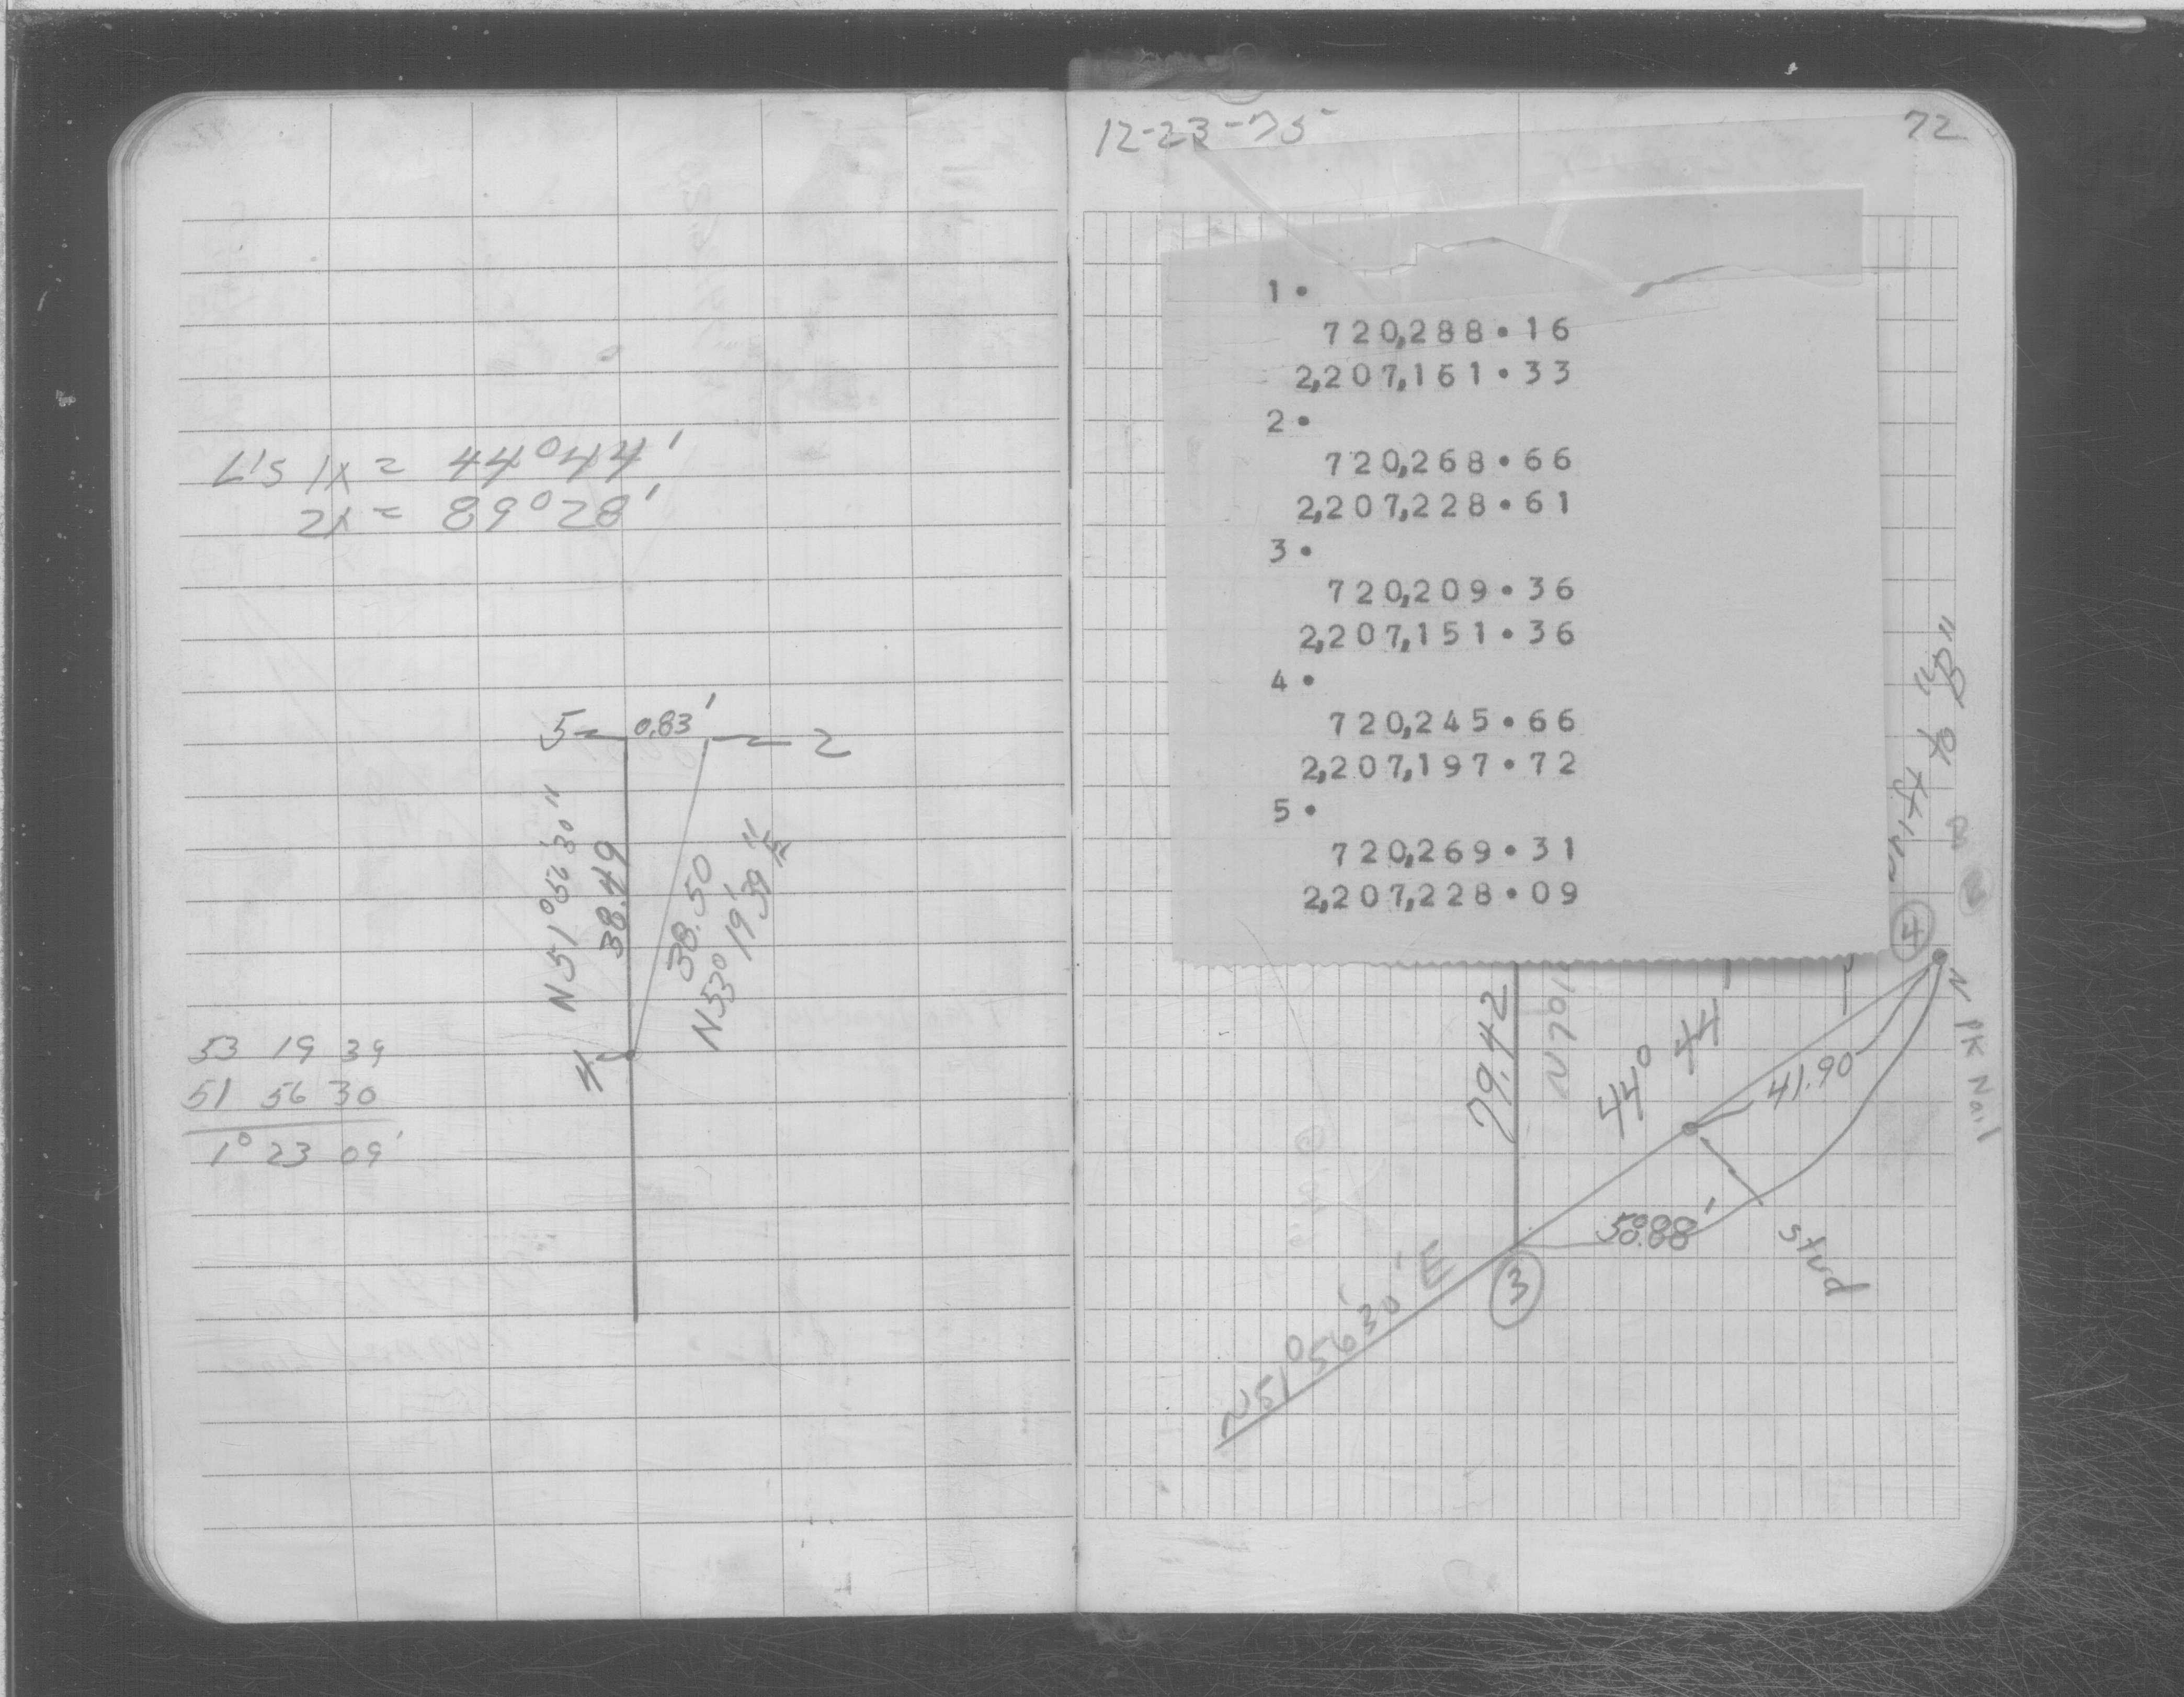 L's 1x = 44°44'
2x = 89°28'
5 0.83' 2
N 51° 56' 30"
38.49
38.50
N53° 19' 39" E
4
53 19 39
51 56 30
1° 23 09'
12-23-75
72
1.
720,288.16
2,207,161.33
2.
720,268.66
2,207,228.61
3.
720,209.36
2,207,151.36
4.
720,245.66
2,207,197.72
5.
720,269.31
2,207,228.09
to "B"
4
PK Nail
79.42
44° 44'
41.90
58.88'
stud
3
N51° 56' 30' E